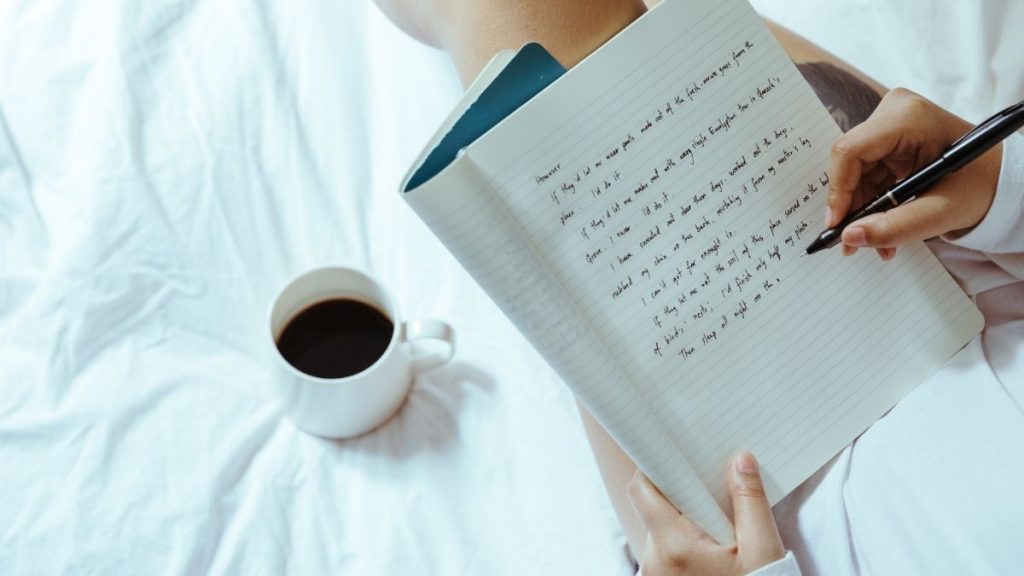 However
If they'd let me wear pants made out of the fresh grass from the
, I'd do it
If they'd let me make out with every single Eucalyptus tree in
Grove, I never, I'd do it.
I have sweated out dew these days, worked out the dregs,
rubbed my chin on tree bark, mistaking it for my master's leg
I can't get far enough in.
If they let me eat the soil of this place served on the
of birds' nests, I'd finish only half my plate
Then sleep all night on the